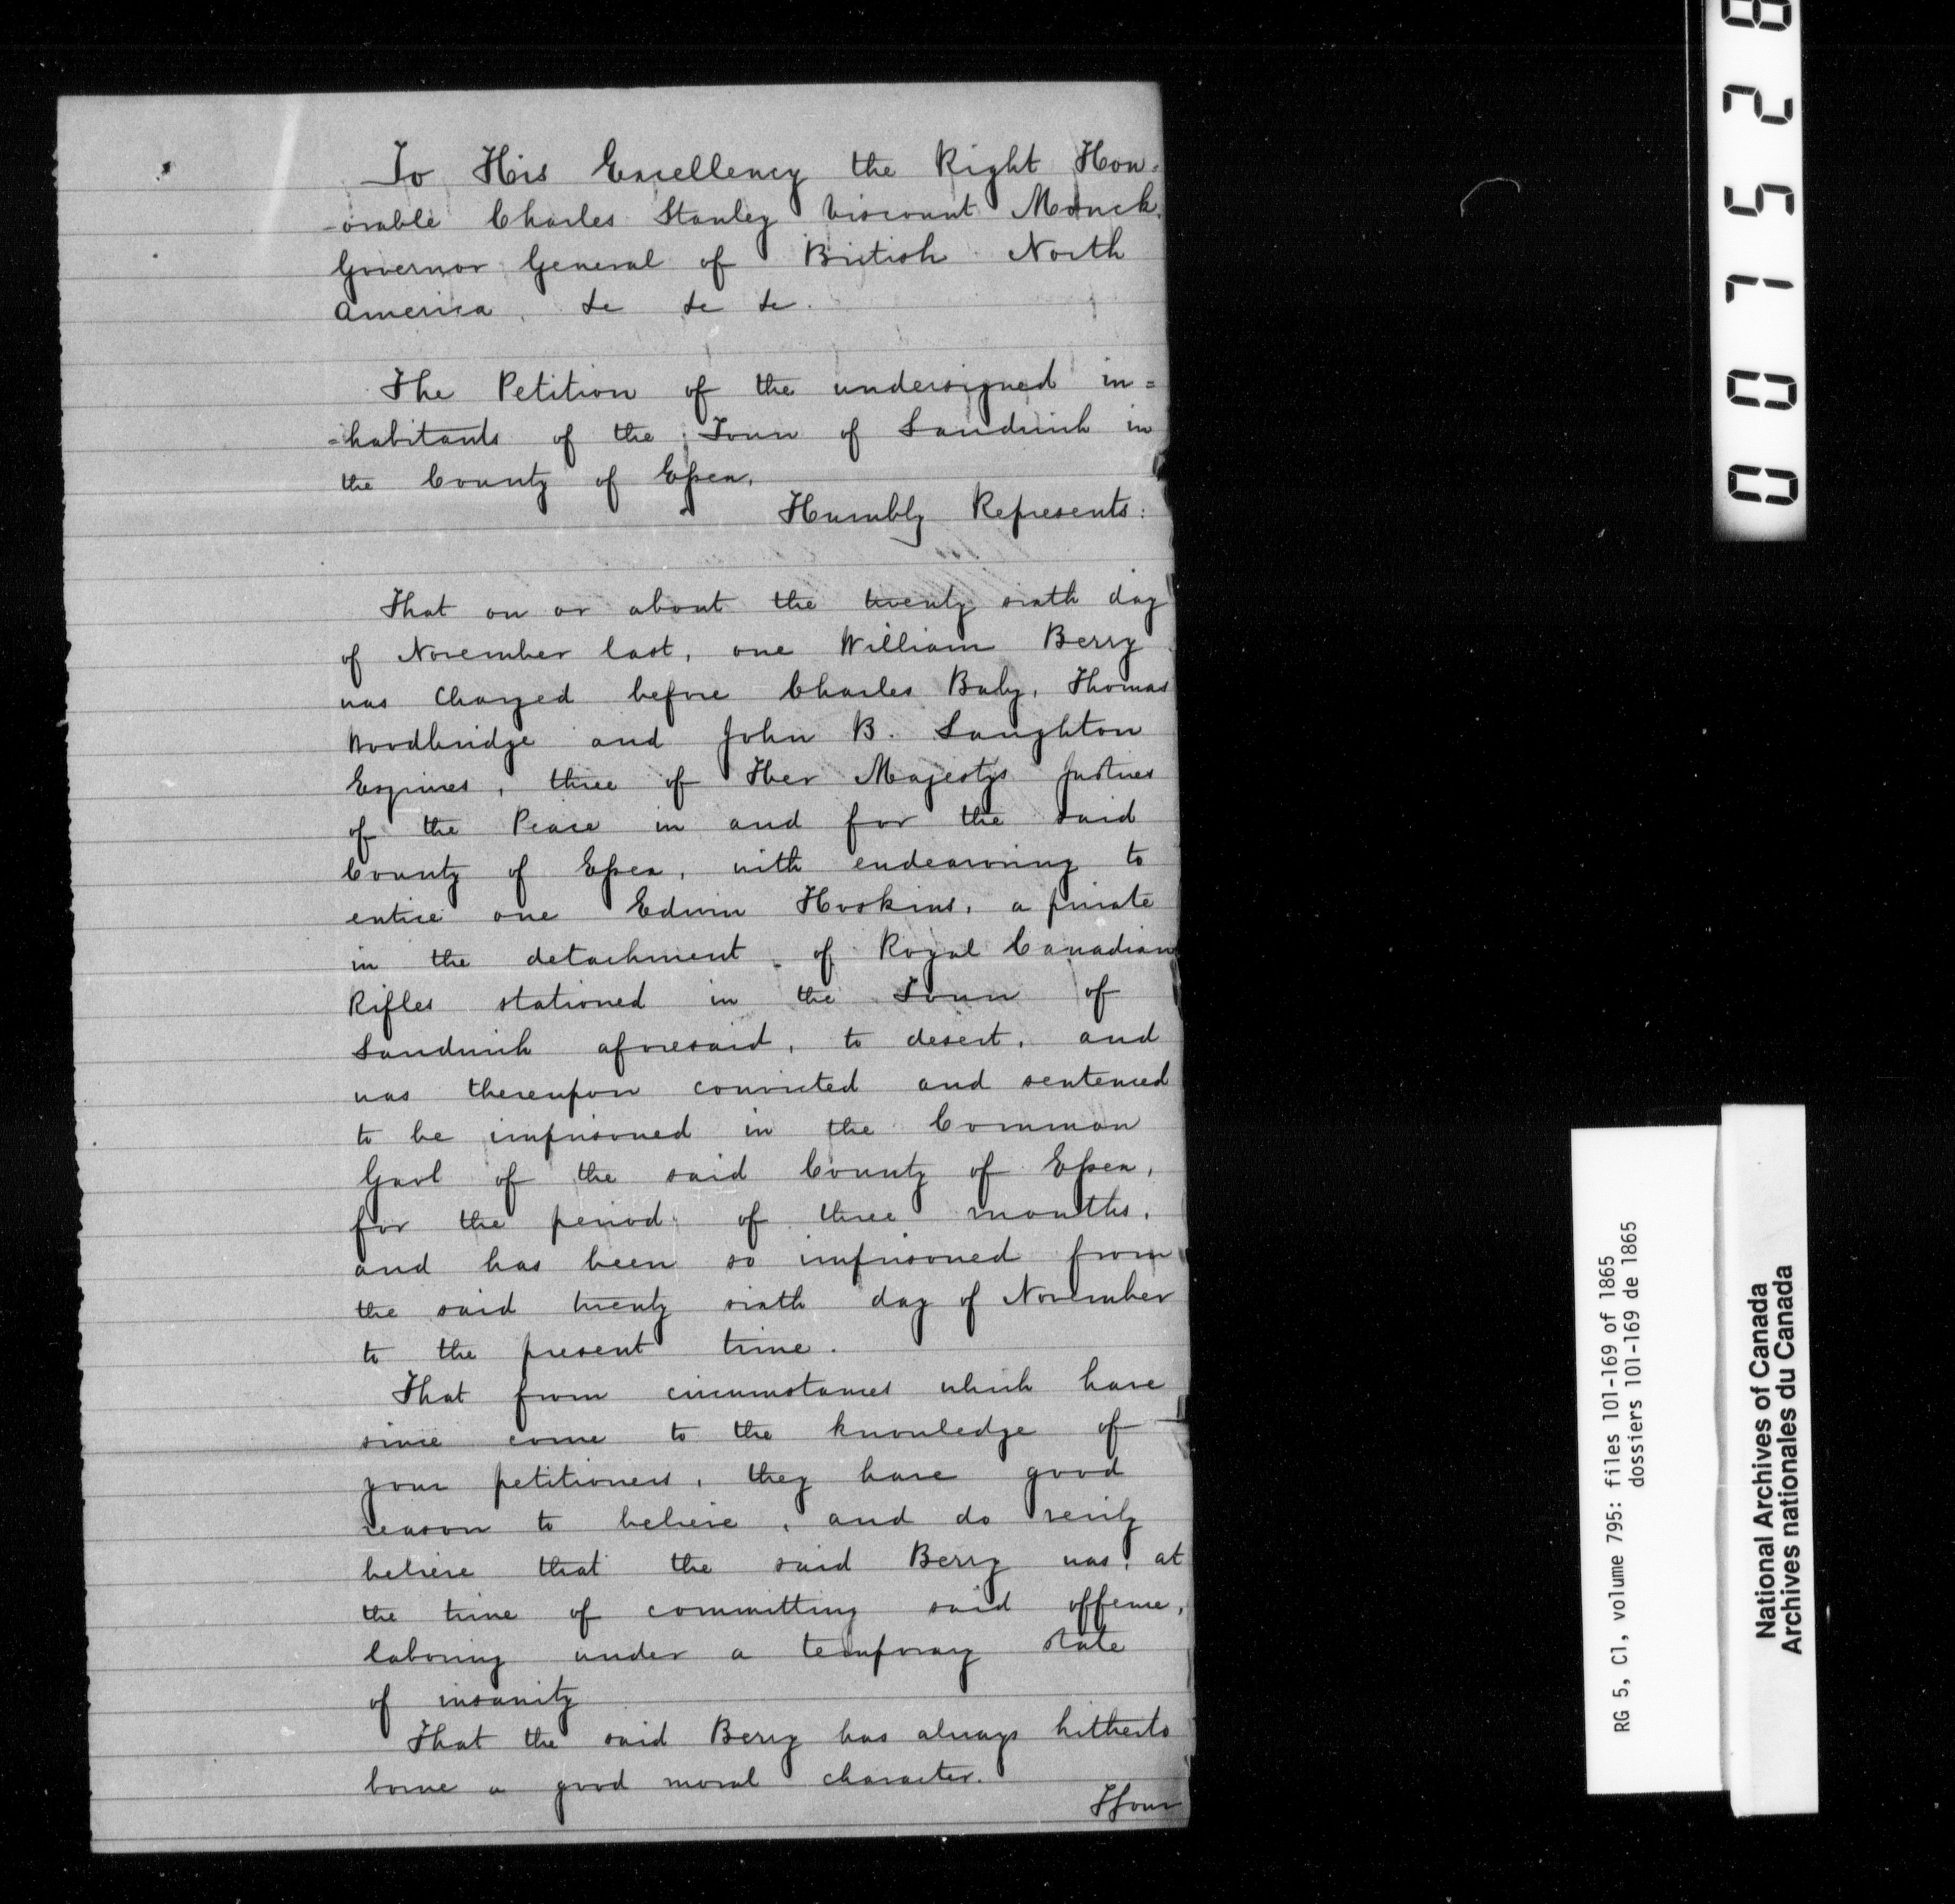 To His Excellency the Right Hon-
-orable Charles Stanley Viscount Monck.
Governor General of British North
America, &c &c &c.
The Petition of the undersigned in=
=habitants of the Town of Sandwich in
the County of Essex,
Humbly Represents:
That on or about the twenty sixth day
of November last, one William Berry
was charged before Charles Baby, Thomas
Woodbridge and John B. Laughton
Esquires, three of Her Majestys Justices
of the Peace in and for the said
County of Essex, with endeavoring to
entice one Edwin Hoskins, a private
in the detachment of Royal Canadian
Rifles stationed in the Town of
Sandwich aforesaid, to desert, and
was thereupon convicted and sentenced
to be imprisoned in the Common
Gaol of the said County of Essex,
for the period of three months,
and has been so imprisoned from
the said twenty sixth day of November
to the present time.
That from circumstances which have
since come to the knowledge of
your petitioners, they have good
reason to believe, and do verily
believe that the said Berry was, at
the time of committing said offence,
laboring under a temporary state
of insanity
That the said Berry has always hitherto
borne a good moral character.
007528
RG 5, C1, volume 795: files 101-169 of 1865
dossiers 101-169 de 1865
National Archives of Canada
Archives nationales du Canada